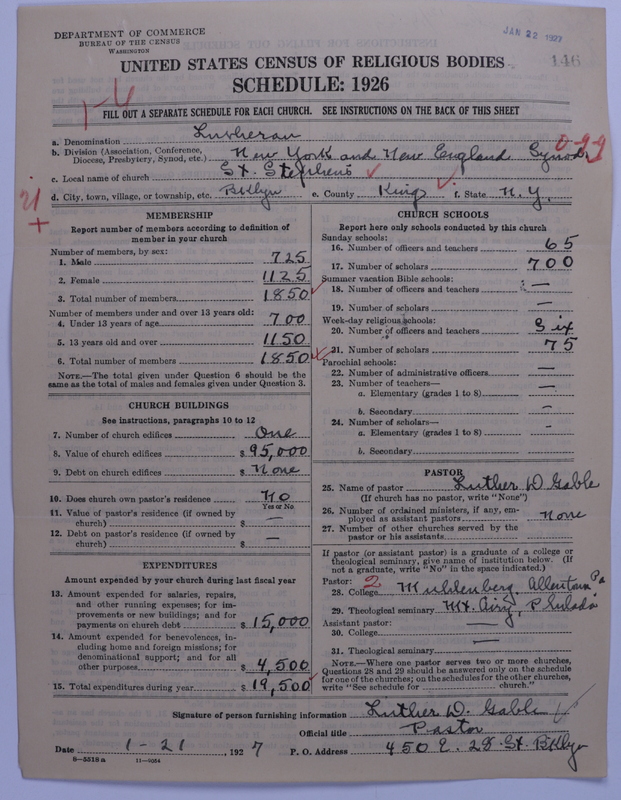 DEPARTMENT OF COMMERCE
BUREAU OF THE CENSUS
WASHINGTON
JAN 22 1927
146
UNITED STATES CENSUS OF RELIGIOUS BODIES
SCHEDULE: 1926
1-6
FILL OUT A SEPARATE SCHEDULE FOR EACH CHURCH. SEE INSTRUCTIONS ON THE BACK OF THIS SHEET
a. Denomination Lutheran
b. Division (Association, Conference, Diocese, Presbytery, Synod, etc.) New York and New England Synod
c. Local name of church St. Stephens
d. City, town, village, or township, etc. Bklyn e. County Kings f. State N.Y.
MEMBERSHIP
Report number of members according to definition of
member in your church
Number of members, by sex:
1. Male 725
2. Female 1125
3. Total number of members 1850
Number of members under and over 13 years old:
4. Under 13 years of age 700
5. 13 years old and over 1150
6. Total number of members 1850
NOTE.—The total given under Question 6 should be the
same as the total of males and females given under Question 3.
CHURCH BUILDINGS
See instructions, paragraphs 10 to 12
7. Number of church edifices One
8. Value of church edifices $ 95,000
9. Debt on church edifices $ None
10. Does church own pastor's residence No
Yes or No
11. Value of pastor's residence (if owned by
church) $ —
12. Debt on pastor's residence (if owned by
church) $ —
EXPENDITURES
Amount expended by your church during last fiscal year
13. Amount expended for salaries, repairs,
and other running expenses; for im-
provements or new buildings; and for
payments on church debt $ 15,000
14. Amount expended for benevolences, in-
cluding home and foreign missions; for
denominational support; and for all
other purposes $ 4,500
15. Total expenditures during year $ 19,500
CHURCH SCHOOLS
Report here only schools conducted by this church
Sunday schools:
16. Number of officers and teachers 65
17. Number of scholars 700
Summer vacation Bible schools:
18. Number of officers and teachers —
19. Number of scholars —
Week-day religious schools:
20. Number of officers and teachers Six
21. Number of scholars 75
Parochial schools:
22. Number of administrative officers —
23. Number of teachers—
a. Elementary (grades 1 to 8) —
b. Secondary —
24. Number of scholars—
a. Elementary (grades 1 to 8) —
b. Secondary —
PASTOR
25. Name of pastor Luther D. Gable
(If church has no pastor, write "None")
26. Number of ordained ministers, if any, em-
ployed as assistant pastors None
27. Number of other churches served by the
pastor or his assistants
If pastor (or assistant pastor) is a graduate of a college or
theological seminary, give name of institution below. (If
not a graduate, write "No" in the space indicated.)
Pastor: 2
28. College Muhlenberg, Allentown Pa
29. Theological seminary Mt. Airy, Philada
Assistant pastor:
30. College —
31. Theological seminary —
NOTE.—Where one pastor serves two or more churches,
Questions 28 and 29 should be answered only on the schedule
for one of the churches; on the schedules for the other churches,
write "See schedule for church."
Signature of person furnishing information Luther D. Gable
Official title Pastor
Date 1-21, 1927 P. O. Address 450 E. 28 St. Bklyn
8-5518 a 11-5054